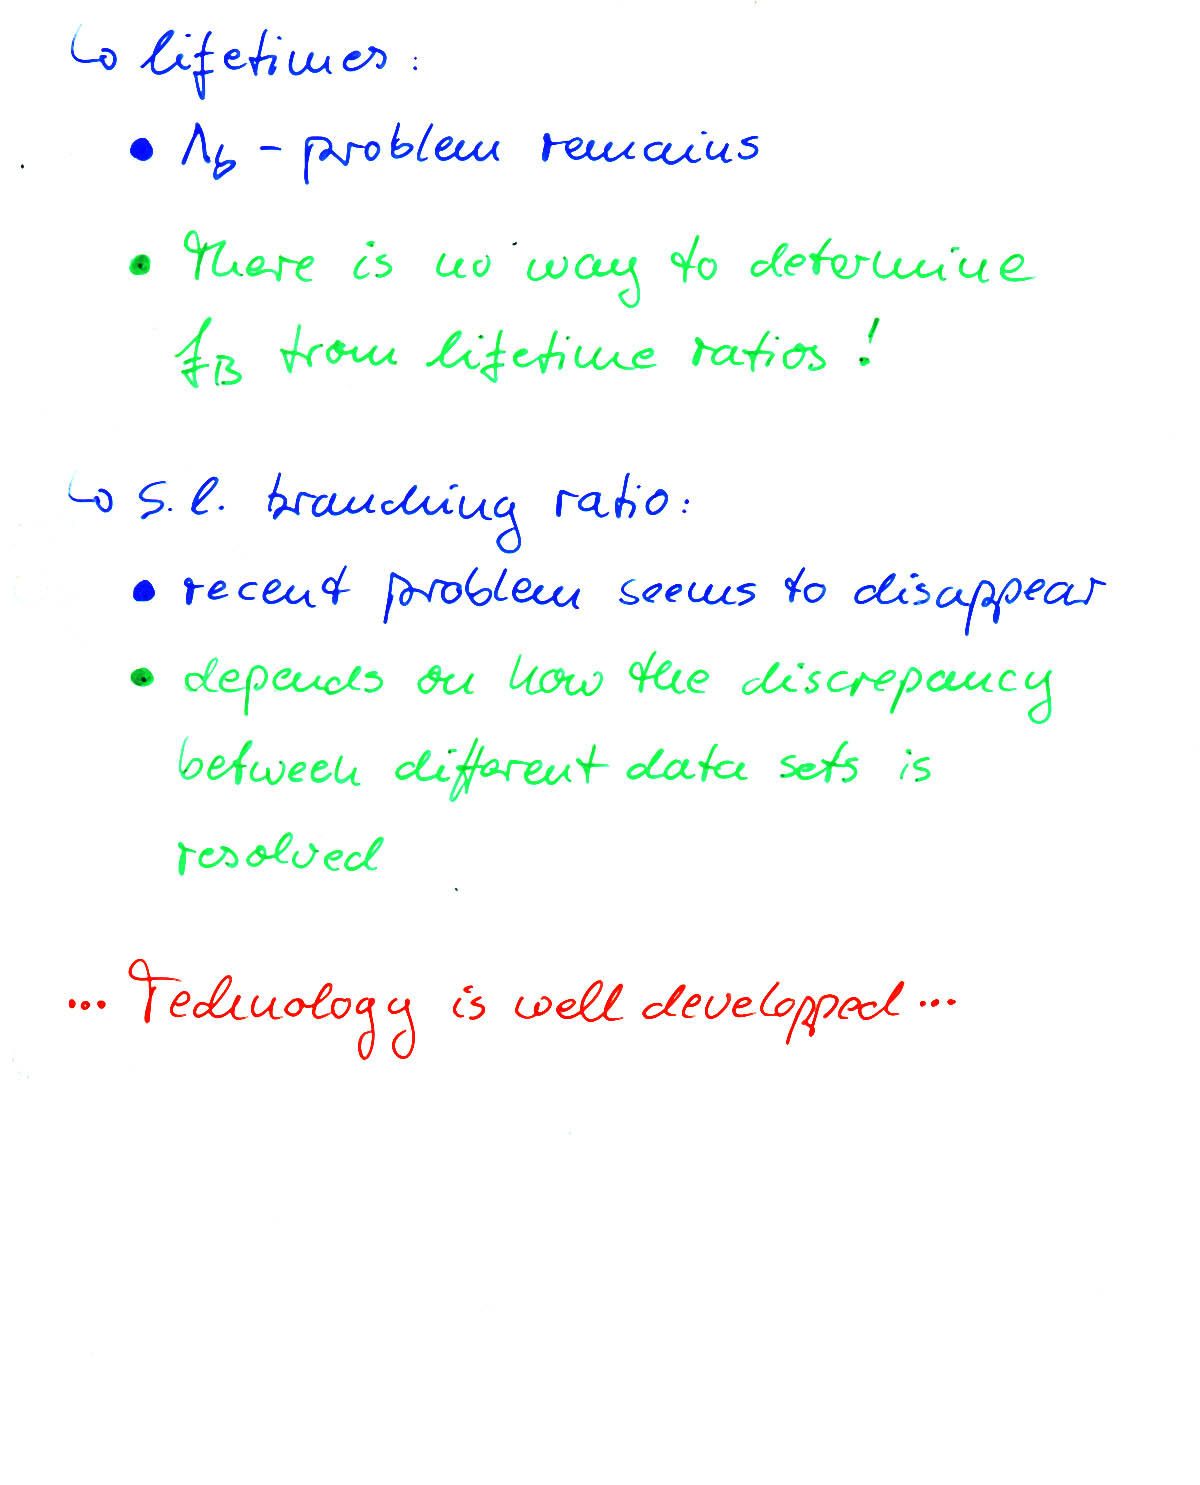 ↳ lifetimes:
• Λb - problem remains
• There is no way to determine
fB from lifetime ratios!
↳ s.l. branching ratio:
• recent problem seems to disappear
• depends on how the discrepancy
between different data sets is
resolved
... Technology is well developped ...